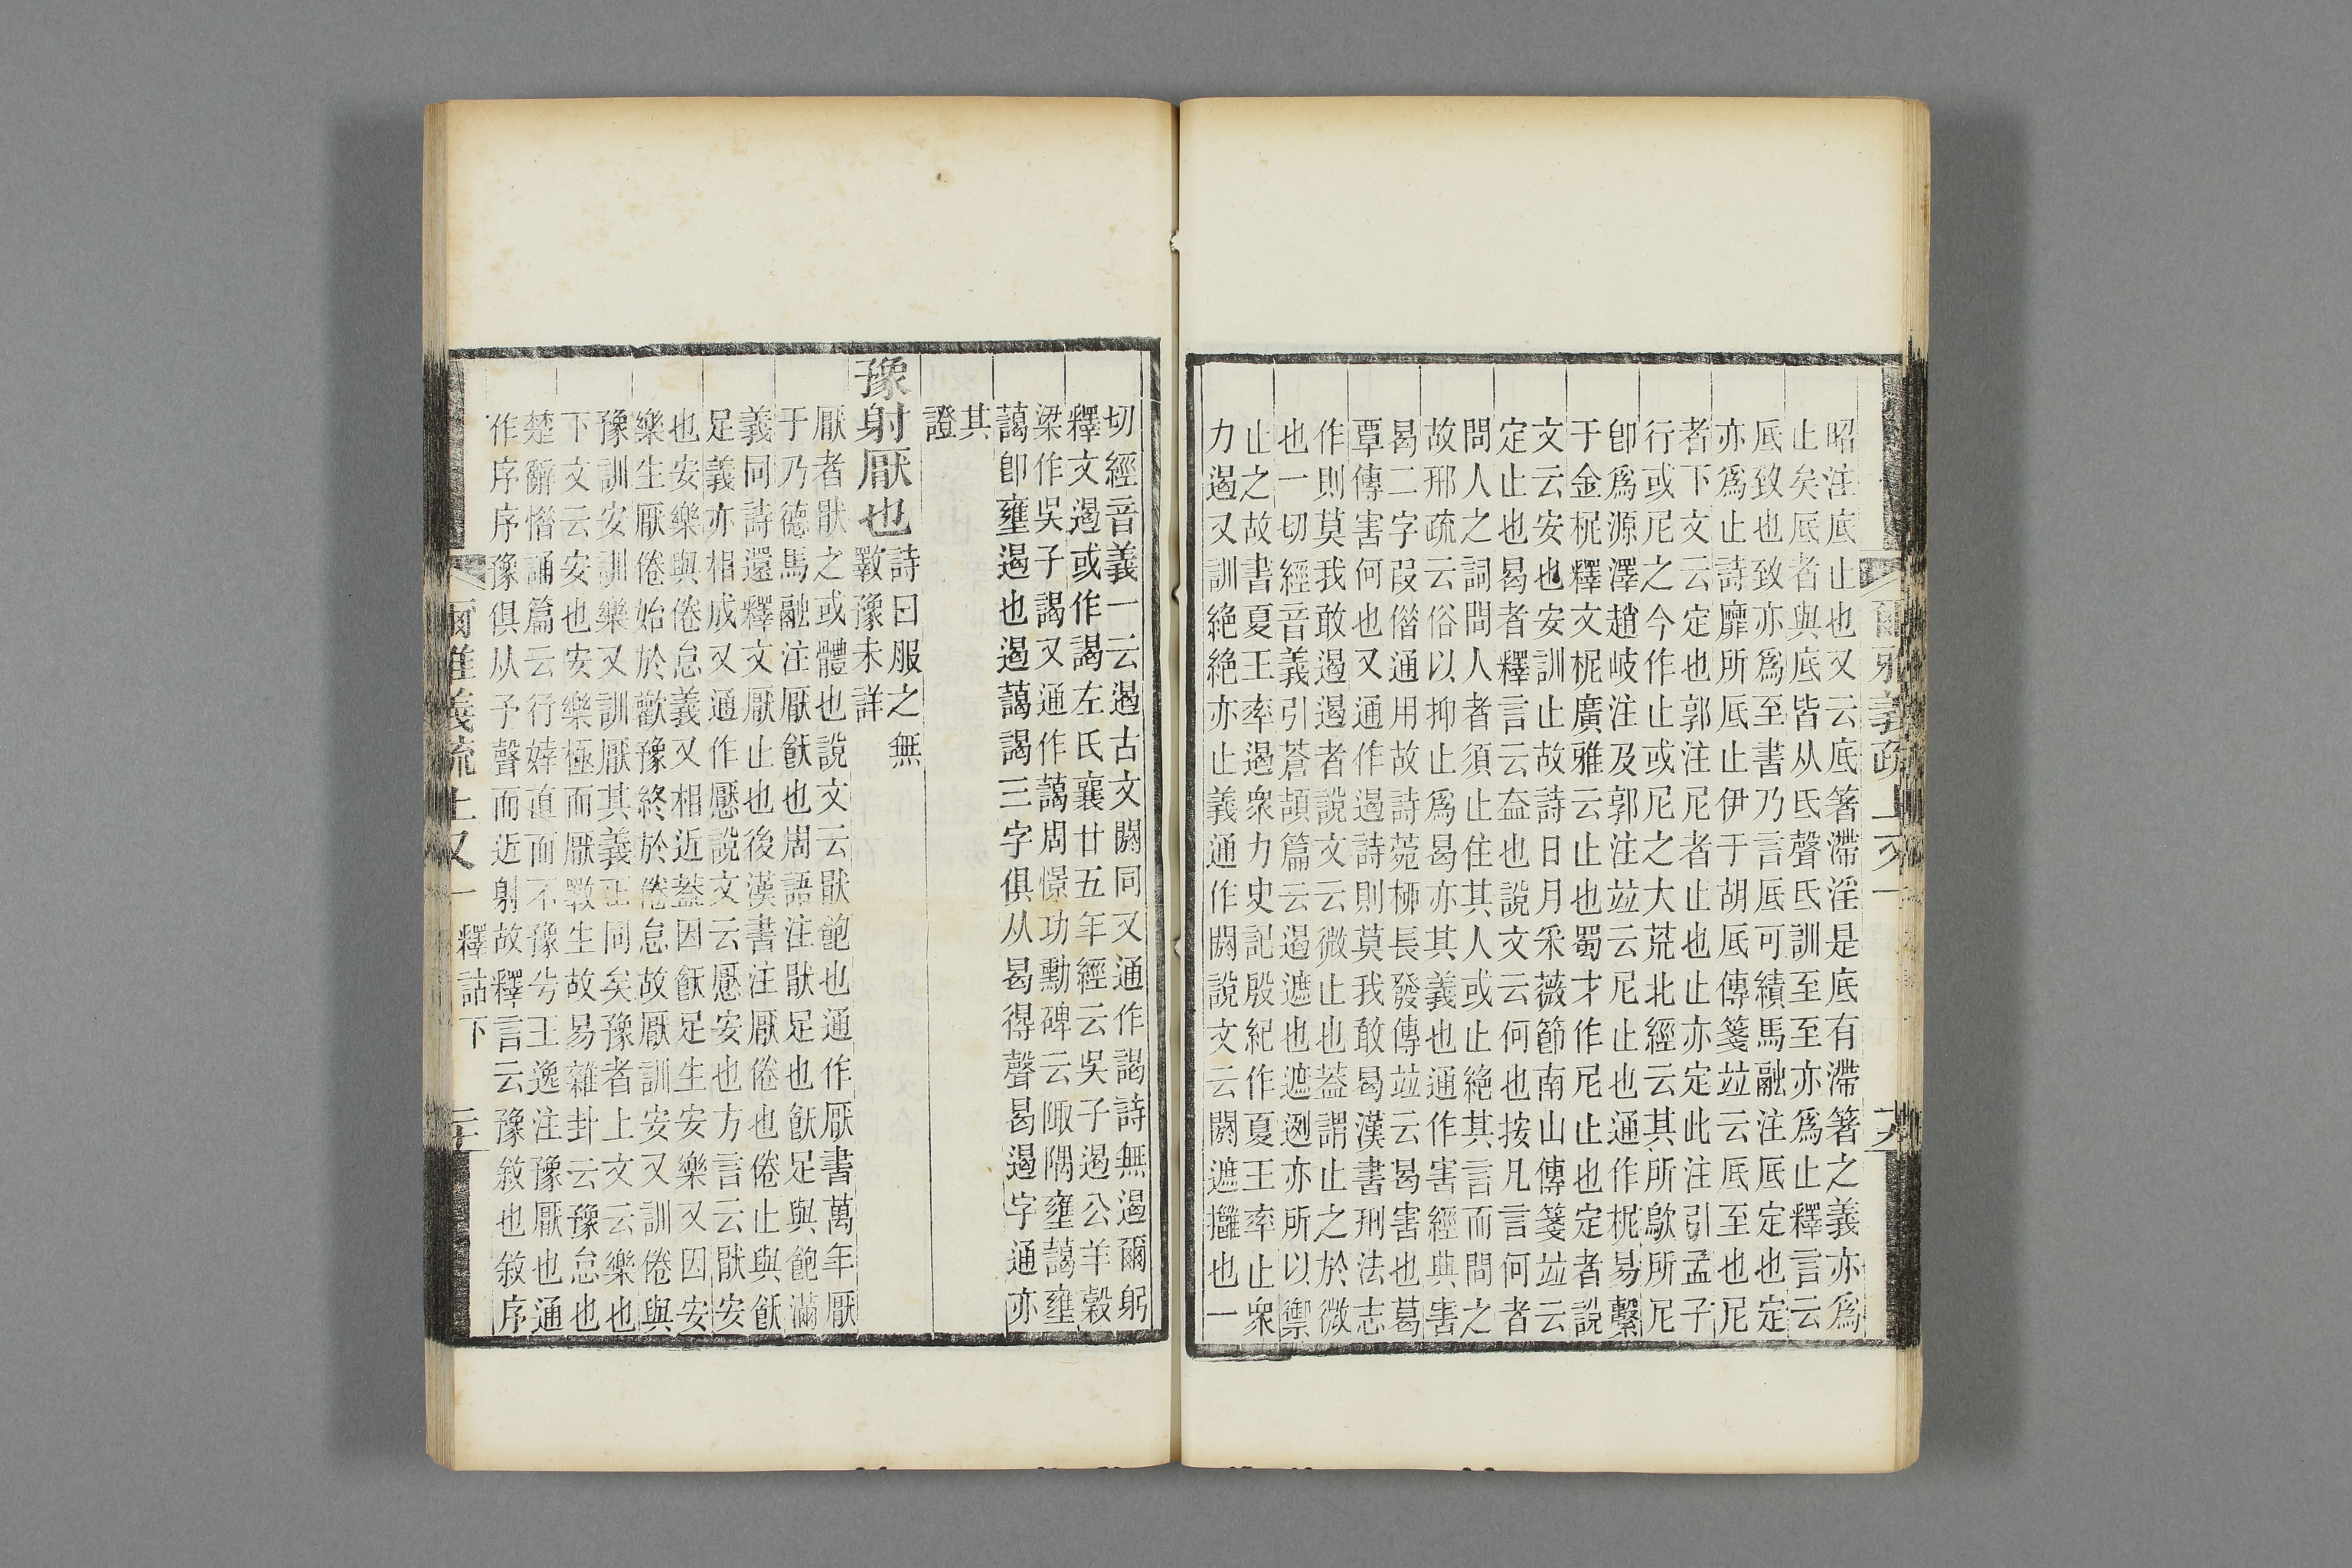 爾雅義疏 上又一 十九
昭注底止也又云底箸滯淫是底有滯箸之義亦爲
止矣厎者與底皆从氐聲氐訓至至亦爲止釋言云
厎致也致亦爲至書乃言厎可績馬融注厎定也定
亦爲止詩靡所厎止伊于胡厎傳箋竝云厎至也尼
者下文云定也郭注尼者止也止亦定此注引孟子
行或尼之今作止或尼之大荒北經云其所歍所尼
卽爲源澤趙岐注及郭注竝云尼止也通作柅易繫
于金柅釋文柅廣雅云止也蜀才作尼止也定者說
文云安也安訓止故詩日月采薇節南山傳箋竝云
定止也曷者釋言云盍也說文云何也按凡言何者
問人之詞問人者須止住其人或止絶其言而問之
故邢疏云俗以抑止爲曷亦其義也通作害經典害
曷二字叚偕通用故詩菀栁長發傳竝云曷害也葛
覃傳害何也又通作遏詩則莫我敢曷漢書刑法志
作則莫我敢遏遏者說文云微止也葢謂止之於微
也一切經音義引蒼頡篇云遏遮也遮迾亦所以禦
止之故書夏王率遏衆力史記殷紀作夏王率止衆
力遏又訓絶絶亦止義通作閼說文云閼遮攤也一
切經音義一云遏古文閼同又通作謁詩無遏爾躬
釋文遏或作謁左氏襄廿五年經云吳子遏公羊穀
梁作吳子謁又通作藹周憬功勳碑云陬隅壅藹壅
藹卽壅遏也遏藹謁三字俱从曷得聲曷遏字通亦
其
證
豫射厭也
詩曰服之無
斁豫未詳
厭者猒之或體也說文云猒飽也通作厭書萬年厭
于乃德馬融注厭飫也周語注猒足也飫足與飽滿
義同詩還釋文厭止也後漢書注厭倦也倦止與飫
足義亦相成又通作懕說文云懕安也方言云猒安
也安樂與倦怠義又相近葢因飫足生安樂又因安
樂生厭倦始於歡豫終於倦怠故厭訓安又訓倦與
豫訓安訓樂又訓厭其義正同矣豫者上文云樂也
下文云安也安樂極而厭斁生故易雜卦云豫怠也
楚辭惜誦篇云行婞直而不豫兮王逸注豫厭也通
作序序豫俱从予聲而近射故釋言云豫敘也敘序
爾雅義疏 上又一 釋詁下 二十